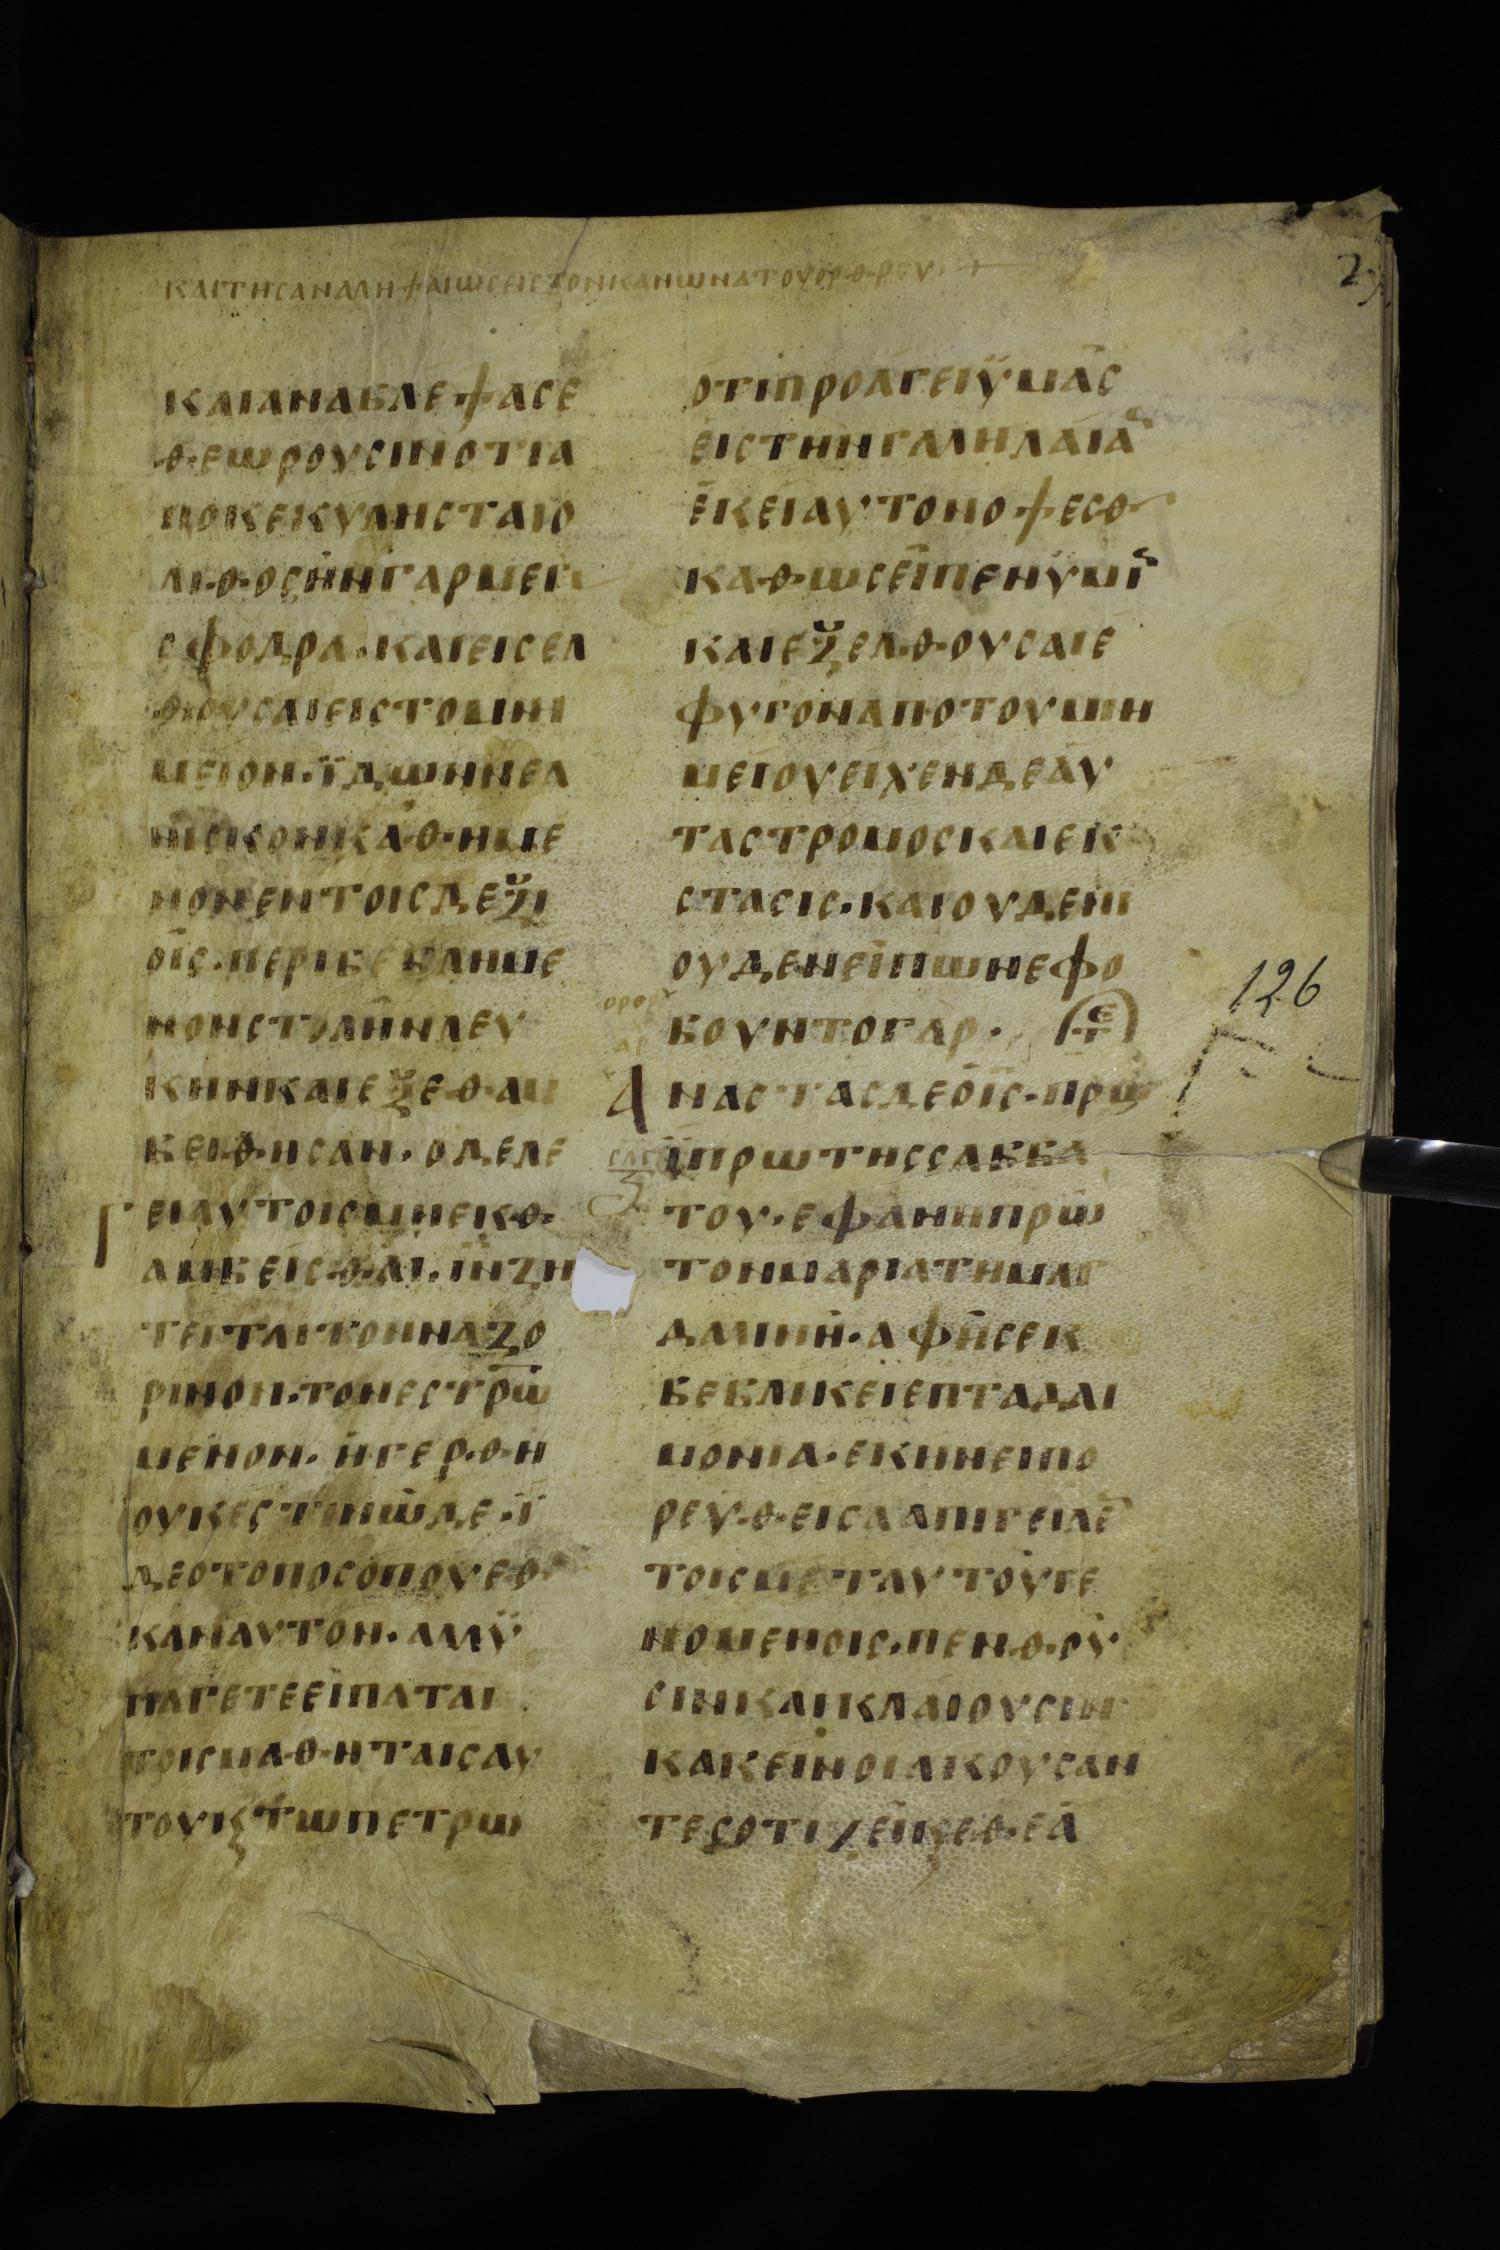 ΚΑΙΤΗСΑΝΑΛΗΨΑΙѠСΕΙСΤΟΝΚΑΝѠΝΑΤΟΥΟΡΘΡΟΥ
29
ΚΑΙΑΝΑΒΛΕΨΑСΕ
ΘΕѠΡΟΥСΙΝΟΤΙΑ
ΠΟΚΕΚΥΛΗСΤΑΙΟ
ΛΙΘΟСΗΝΓΑΡΜΕΓΑ
СΦΟΔΡΑ·ΚΑΙΕΙСΕΛ
ΘΟΥСΑΙΕΙСΤΟΜΝΙ
ΜΕΙΟΝ·ΪΔѠΝΝΕΑ
ΝΙСΚΟΝΚΑΘΗΜΕ
ΝΟΝΕΝΤΟΙСΔΕΞΙ
ΟΙС·ΠΕΡΙΒΕΒΛΗΜΕ
ΝΟΝСΤΟΛΗΝΛΕΥ
ΚΗΝΚΑΙΕΞΕΘΑΜ
ΒΕΙΘΗСΑΝ·ΟΔΕΛΕ
ΓΕΙΑΥΤΟΙСΜΗΕΚΘ
ΑΜΒΕΙСΘΑΙ·ΙΝΖΗ
ΤΕΙΤΑΙΤΟΝΝΑΖΟ
ΡΙΝΟΝ·ΤΟΝΕСΤΡѠ
ΜΕΝΟΝ·ΗΓΕΡΘΗ
ΟΥΚΕСΤΙΝѠΔΕ·Ϊ
ΔΕΟΤΟΠΟСΟΠΟΥΕΘ
ΚΑΝΑΥΤΟΝ·ΑΛΛΫ
ΠΑΓΕΤΕΕΙΠΑΤΑΙ
ΤΟΙСΜΑΘΗΤΑΙСΑΥ
ΤΟΥΚϚΤѠΠΕΤΡѠ
ΟΤΙΠΡΟΑΓΕΙΫΜΑС
ΕΙСΤΗΝΓΑΛΗΛΑΙΑ
ΕΚΕΙΑΥΤΟΝΟΨΕСΘ
ΚΑΘѠСΕΙΠΕΝΫΜΙ
ΚΑΙΕΞΕΛΘΟΥСΑΙΕ
ΦΥΓΟΝΑΠΟΤΟΥΜΝΗ
ΜΕΙΟΥΕΙΧΕΝΔΕΑΥ
ΤΑСΤΡΟΜΟСΚΑΙΕΚ
СΤΑСΙС·ΚΑΙΟΥΔΕΝΙ
ΟΥΔΕΝΕΙΠѠΝΕΦΟ
ΒΟΥΝΤΟΓΑΡ·
ΑΝΑСΤΑСΔΕΟΙС·ΠΡѠ
ΪΠΡѠΤΗССΑΒΒΑ
ΤΟΥ·ΕΦΑΝΗΠΡѠ
ΤΟΝΜΑΡΙΑΤΗΜΑΓ
ΔΑΛΙΝΗ·ΑΦΗСΕΚ
ΒΕΒΛΙΚΕΙΕΠΤΑΔΑΙ
ΜΟΝΙΑ·ΕΚΗΝΕΙΠΟ
ΡΕΥΘΕΙСΑΑΠΙΓΕΙΛΕ
ΤΟΙСΜΕΤΑΥΤΟΥΓΕ
ΝΟΜΕΝΟΙС·ΠΕΝΘΟΥ
СΙΝΚΑΙΚΛΑΙΟΥСΙΝ
ΚΑΚΕΙΝΟΙΑΚΟΥСΑΝ
ΤΕСΟΤΙΖΕΙΚϚΕΘΕΑ
126